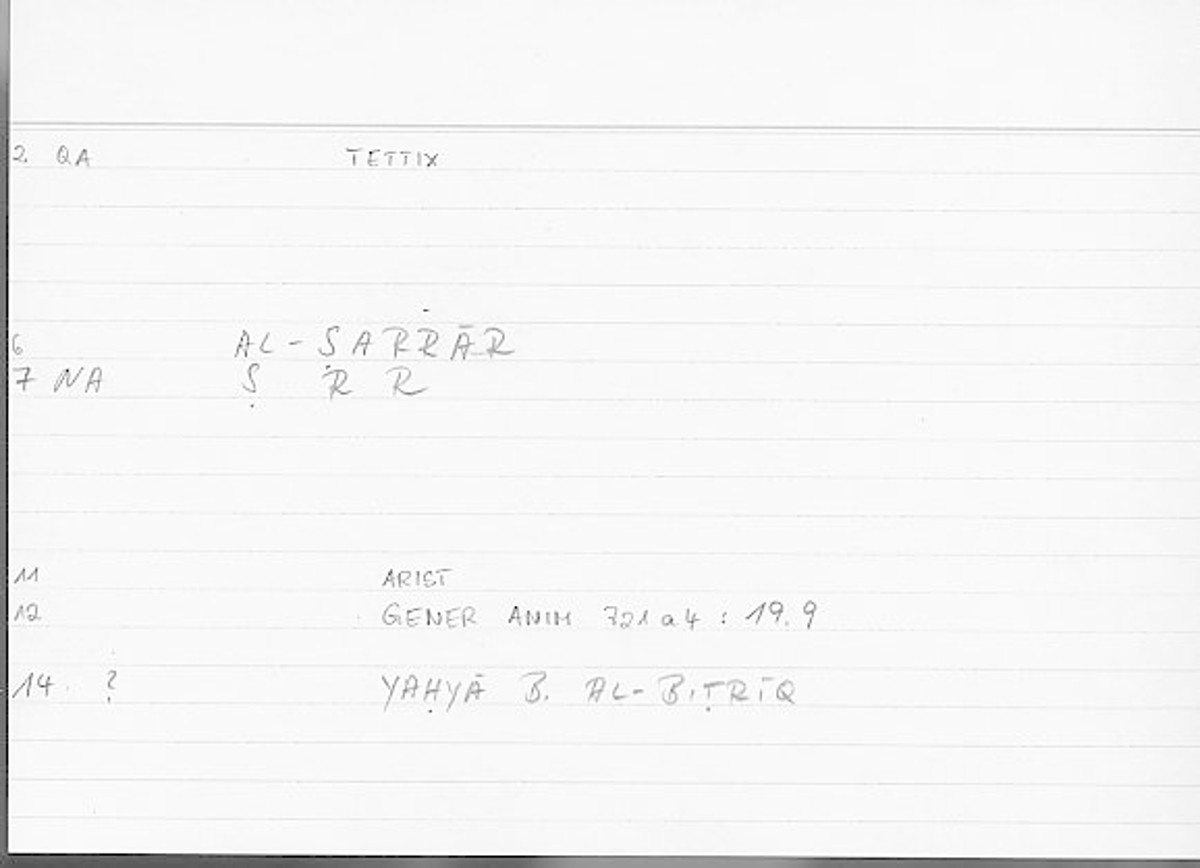 2. QA TETTIX
6 AL-ṢARRĀR
7 NA Ṣ R R
11 ARIST
12 GENER ANIM 721a4 : 19.9
14. ? YAḤYĀ B. AL-BIṬRĪQ